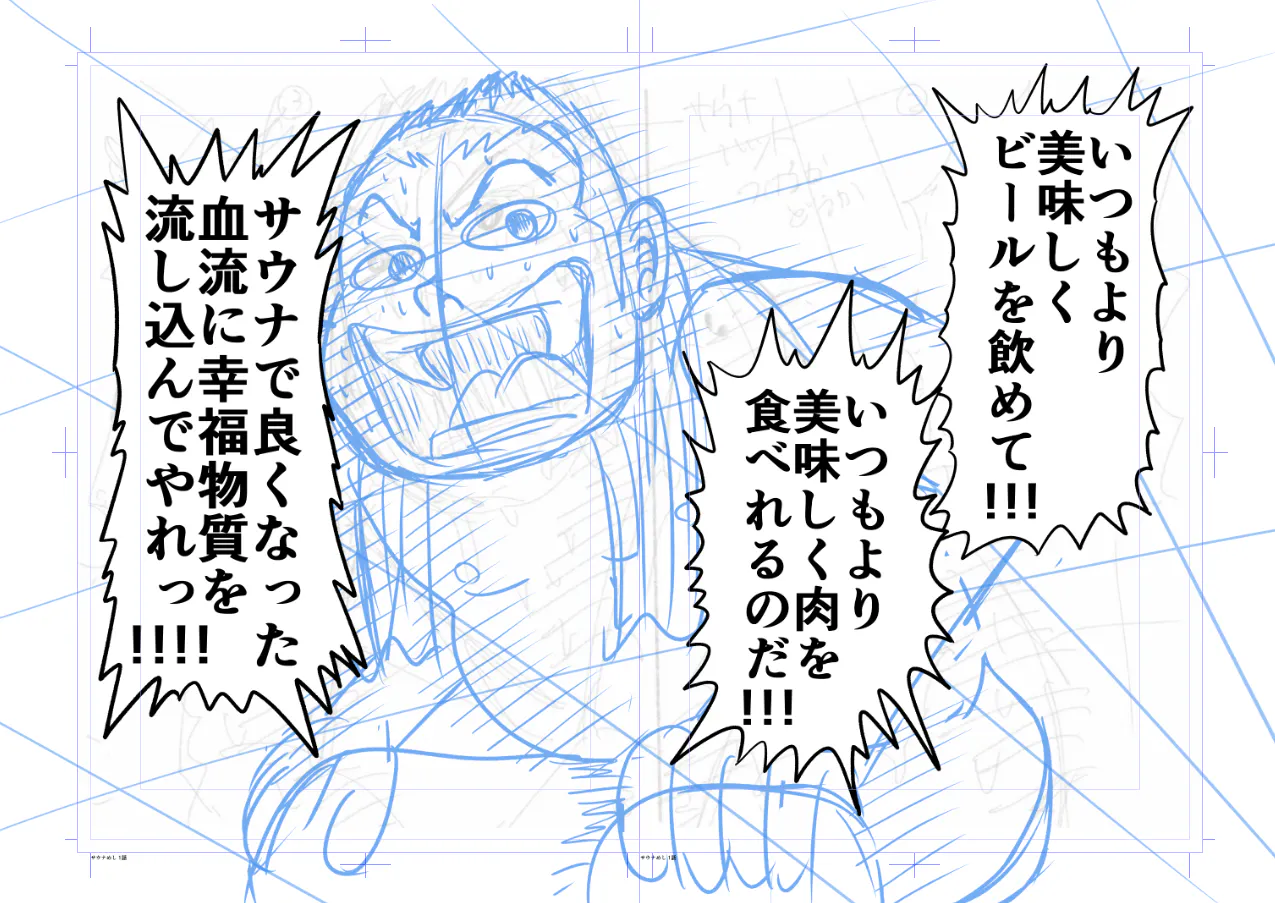 いつもより
美味しく
ビールを飲めて
!!!
いつもより
美味しく肉を
食べれるのだ
!!!
サウナで良くなった
血流に幸福物質を
流し込んでやれっ
!!!!
サウナめし 1話
サウナめし 1話